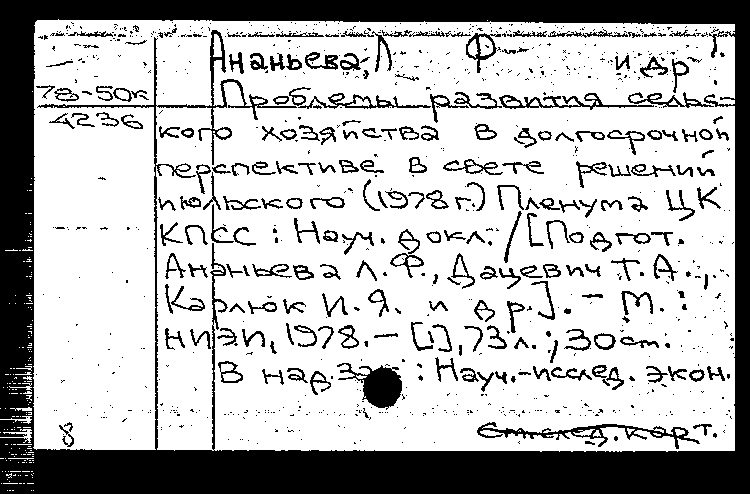 Ананьева, Л Ф и др.
78-50к Проблемы развития сельс-
4236 кого хозяйства в долгосрочной
перспективе в свете решений
июльского (1978 г.) Пленума ЦК
КПСС : Науч. докл. / [Подгот.
Ананьева Л. Ф., Дацевич Т. А.,
Карлюк И. Я. и др.]. - М. :
НИЭИ, 1978. - [1], 73 л. ; 30 см.
В над. : Науч.-исслед. экон.
8 См. след. карт.